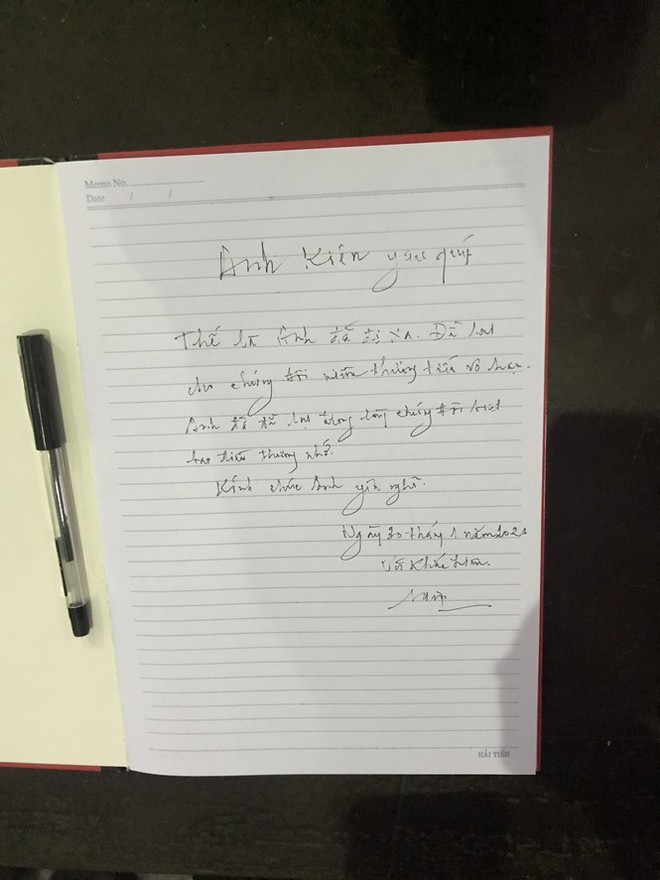 Memo No.
Date / /
Anh Kiên yêu quý
Thế là Anh đã đi xa. Để lại
cho chúng tôi niềm thương tiếc vô hạn.
Anh đã để lại trong lòng chúng tôi biết
bao điều thương nhớ.
Kính chúc Anh yên nghỉ.
Ngày 30 tháng 1 năm 202
Khắc
HẢI TIẾN